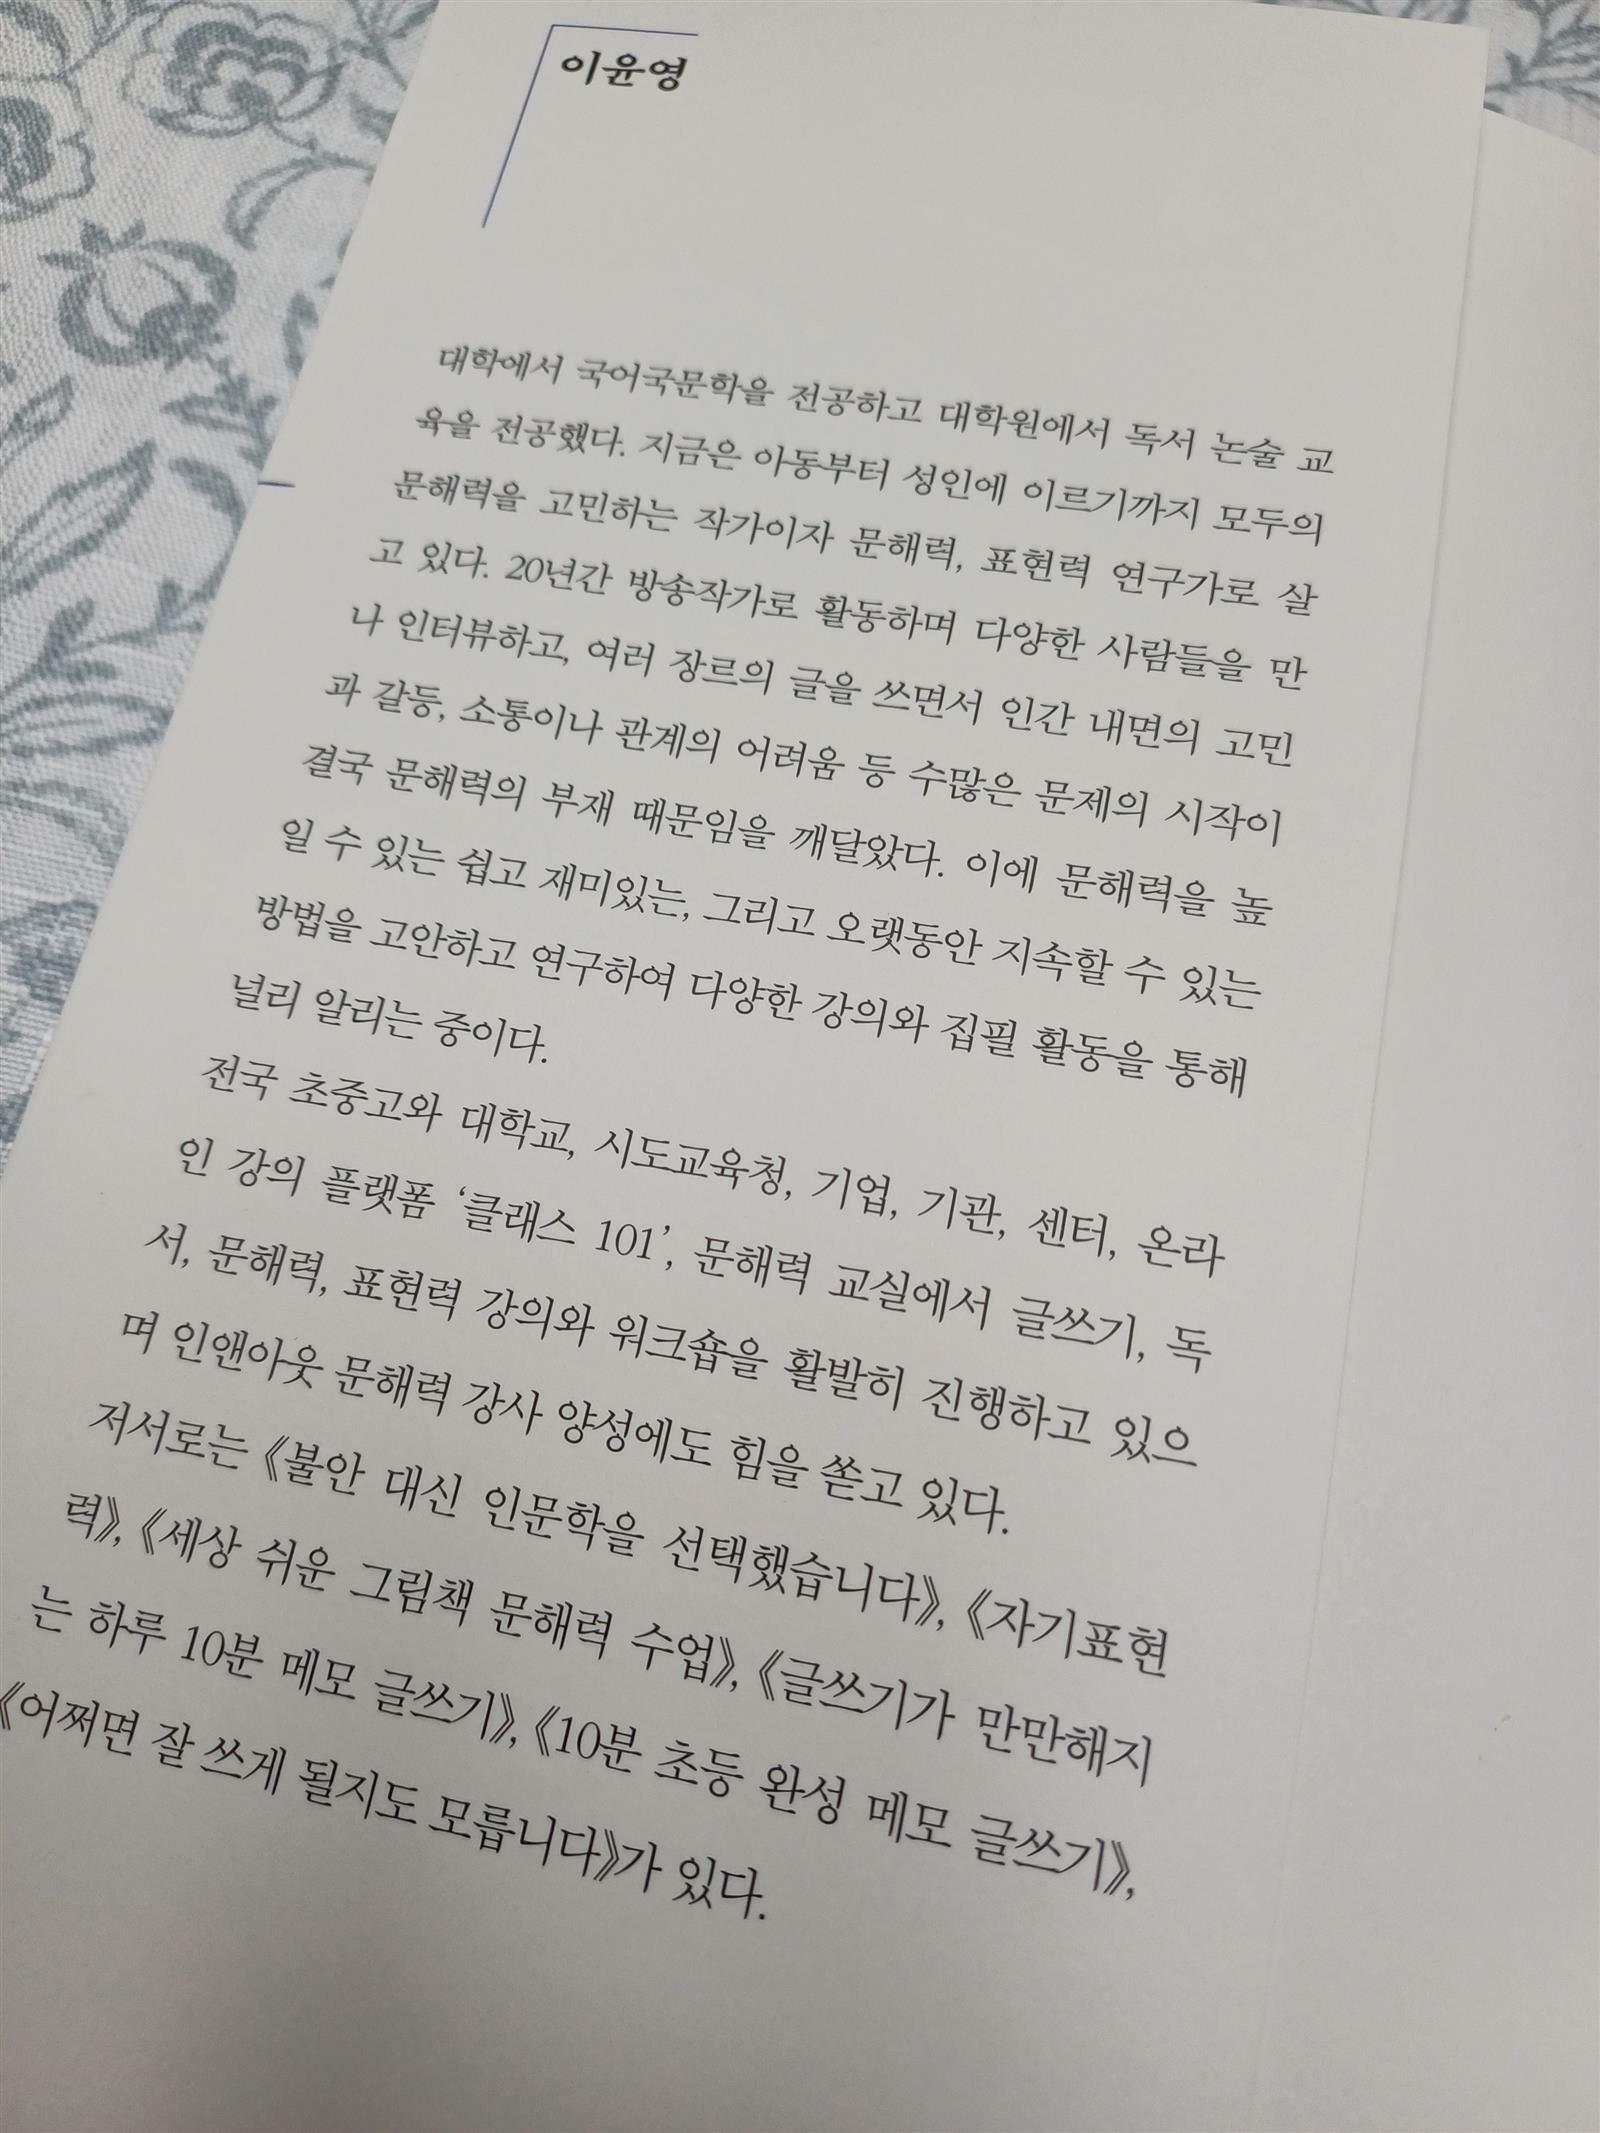 이윤영
대학에서 국어국문학을 전공하고 대학원에서 독서 논술 교
육을 전공했다. 지금은 아동부터 성인에 이르기까지 모두의
문해력을 고민하는 작가이자 문해력, 표현력 연구가로 살
고 있다. 20년간 방송작가로 활동하며 다양한 사람들을 만
나 인터뷰하고, 여러 장르의 글을 쓰면서 인간 내면의 고민
과 갈등, 소통이나 관계의 어려움 등 수많은 문제의 시작이
결국 문해력의 부재 때문임을 깨달았다. 이에 문해력을 높
일 수 있는 쉽고 재미있는, 그리고 오랫동안 지속할 수 있는
방법을 고안하고 연구하여 다양한 강의와 집필 활동을 통해
널리 알리는 중이다.
전국 초중고와 대학교, 시도교육청, 기업, 기관, 센터, 온라
인 강의 플랫폼 ‘클래스 101’, 문해력 교실에서 글쓰기, 독
서, 문해력, 표현력 강의와 워크숍을 활발히 진행하고 있으
며 인앤아웃 문해력 강사 양성에도 힘을 쏟고 있다.
저서로는 《불안 대신 인문학을 선택했습니다》, 《자기표현
력》, 《세상 쉬운 그림책 문해력 수업》, 《글쓰기가 만만해지
는 하루 10분 메모 글쓰기》, 《10분 초등 완성 메모 글쓰기》,
《어쩌면 잘 쓰게 될지도 모릅니다》가 있다.